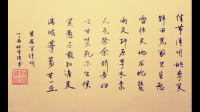 佳節清明桃李笑
野田荒冢只生愁
雷驚天地龍蛇蟄
雨足郊原草木柔
人乞祭餘驕妾婦
士甘焚死不公侯
賢愚千載知誰是
滿眼蓬蒿共一丘
黃庭堅清明